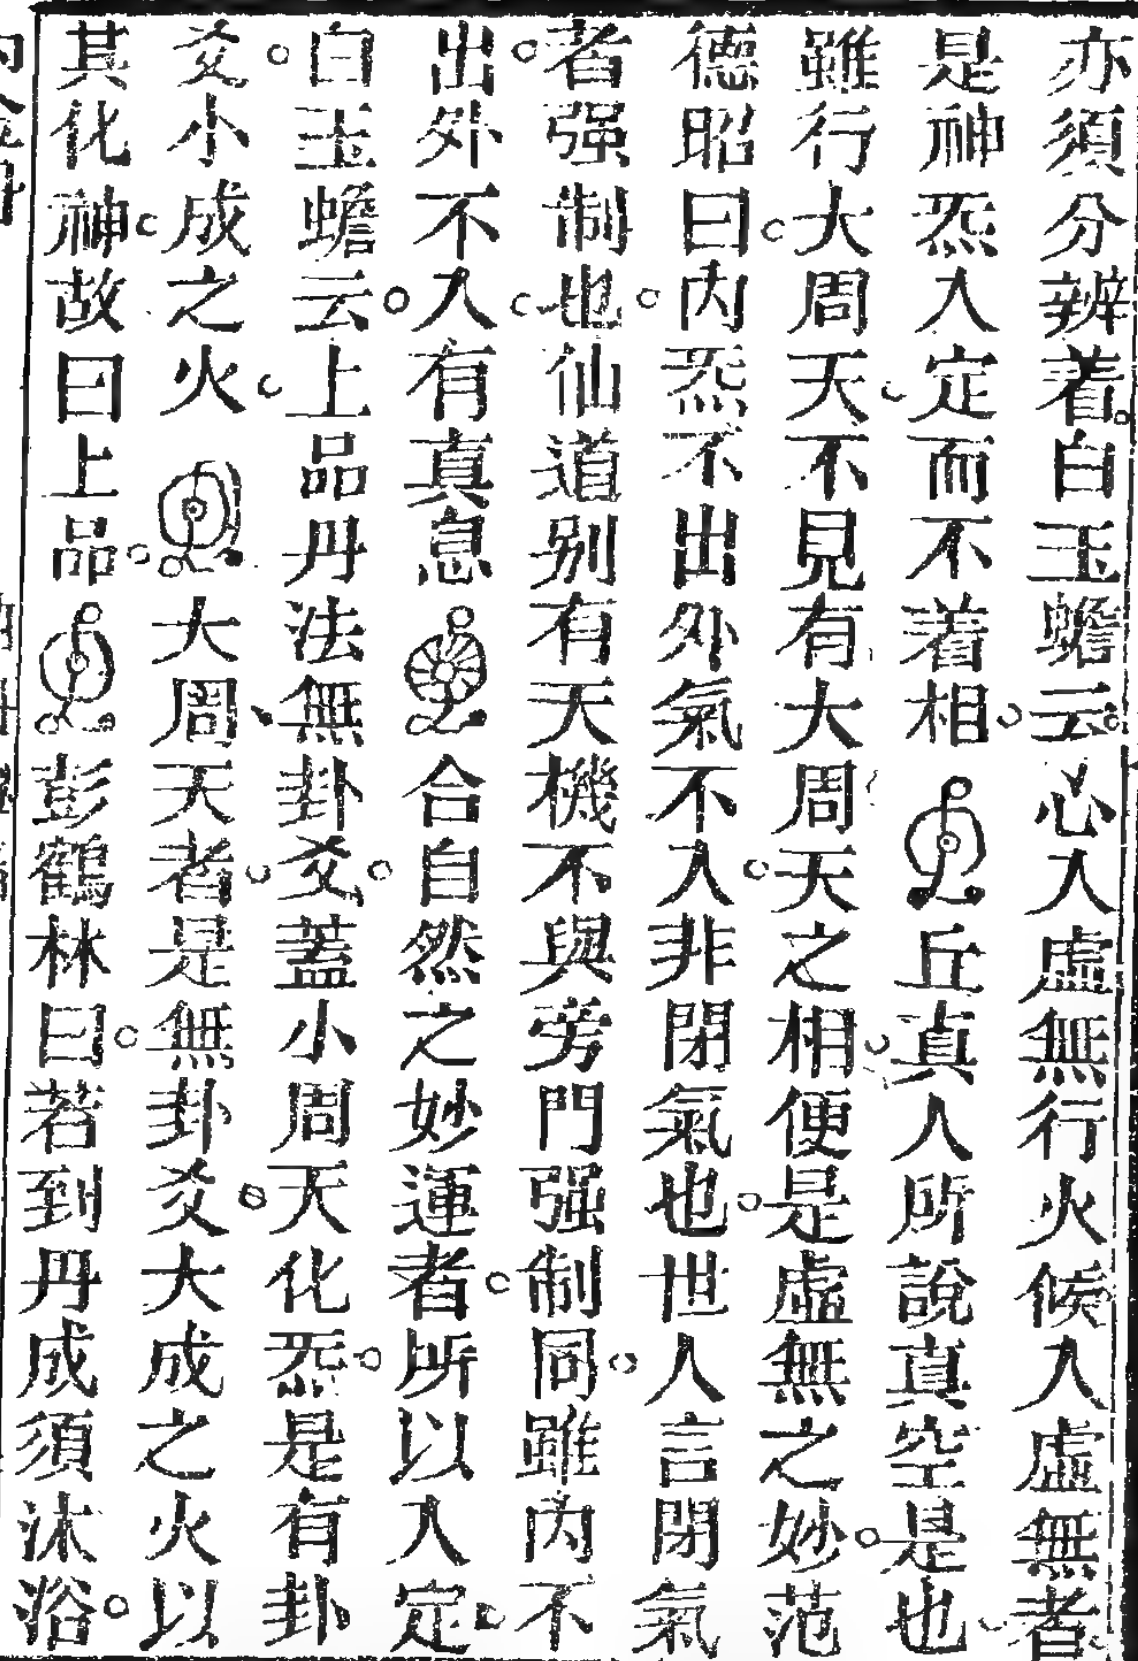 亦須分辨着白玉蟾云心入虛無行火候入虛無者
是神炁入定而不着相丘真人所說真空是也
雖行大周天不見有大周天之相便是虛無之妙范
德昭曰內炁不出外氣不入非閉氣也世人言閉氣
者强制也仙道别有天機不與旁門强制同雖內不
出外不入有真息合自然之妙運者所以入定
白玉蟾云上品丹法無卦爻蓋小周天化炁是有卦
爻小成之火大周天者是無卦爻大成之火以
其化神故曰上品彭鶴林曰若到丹成須沐浴